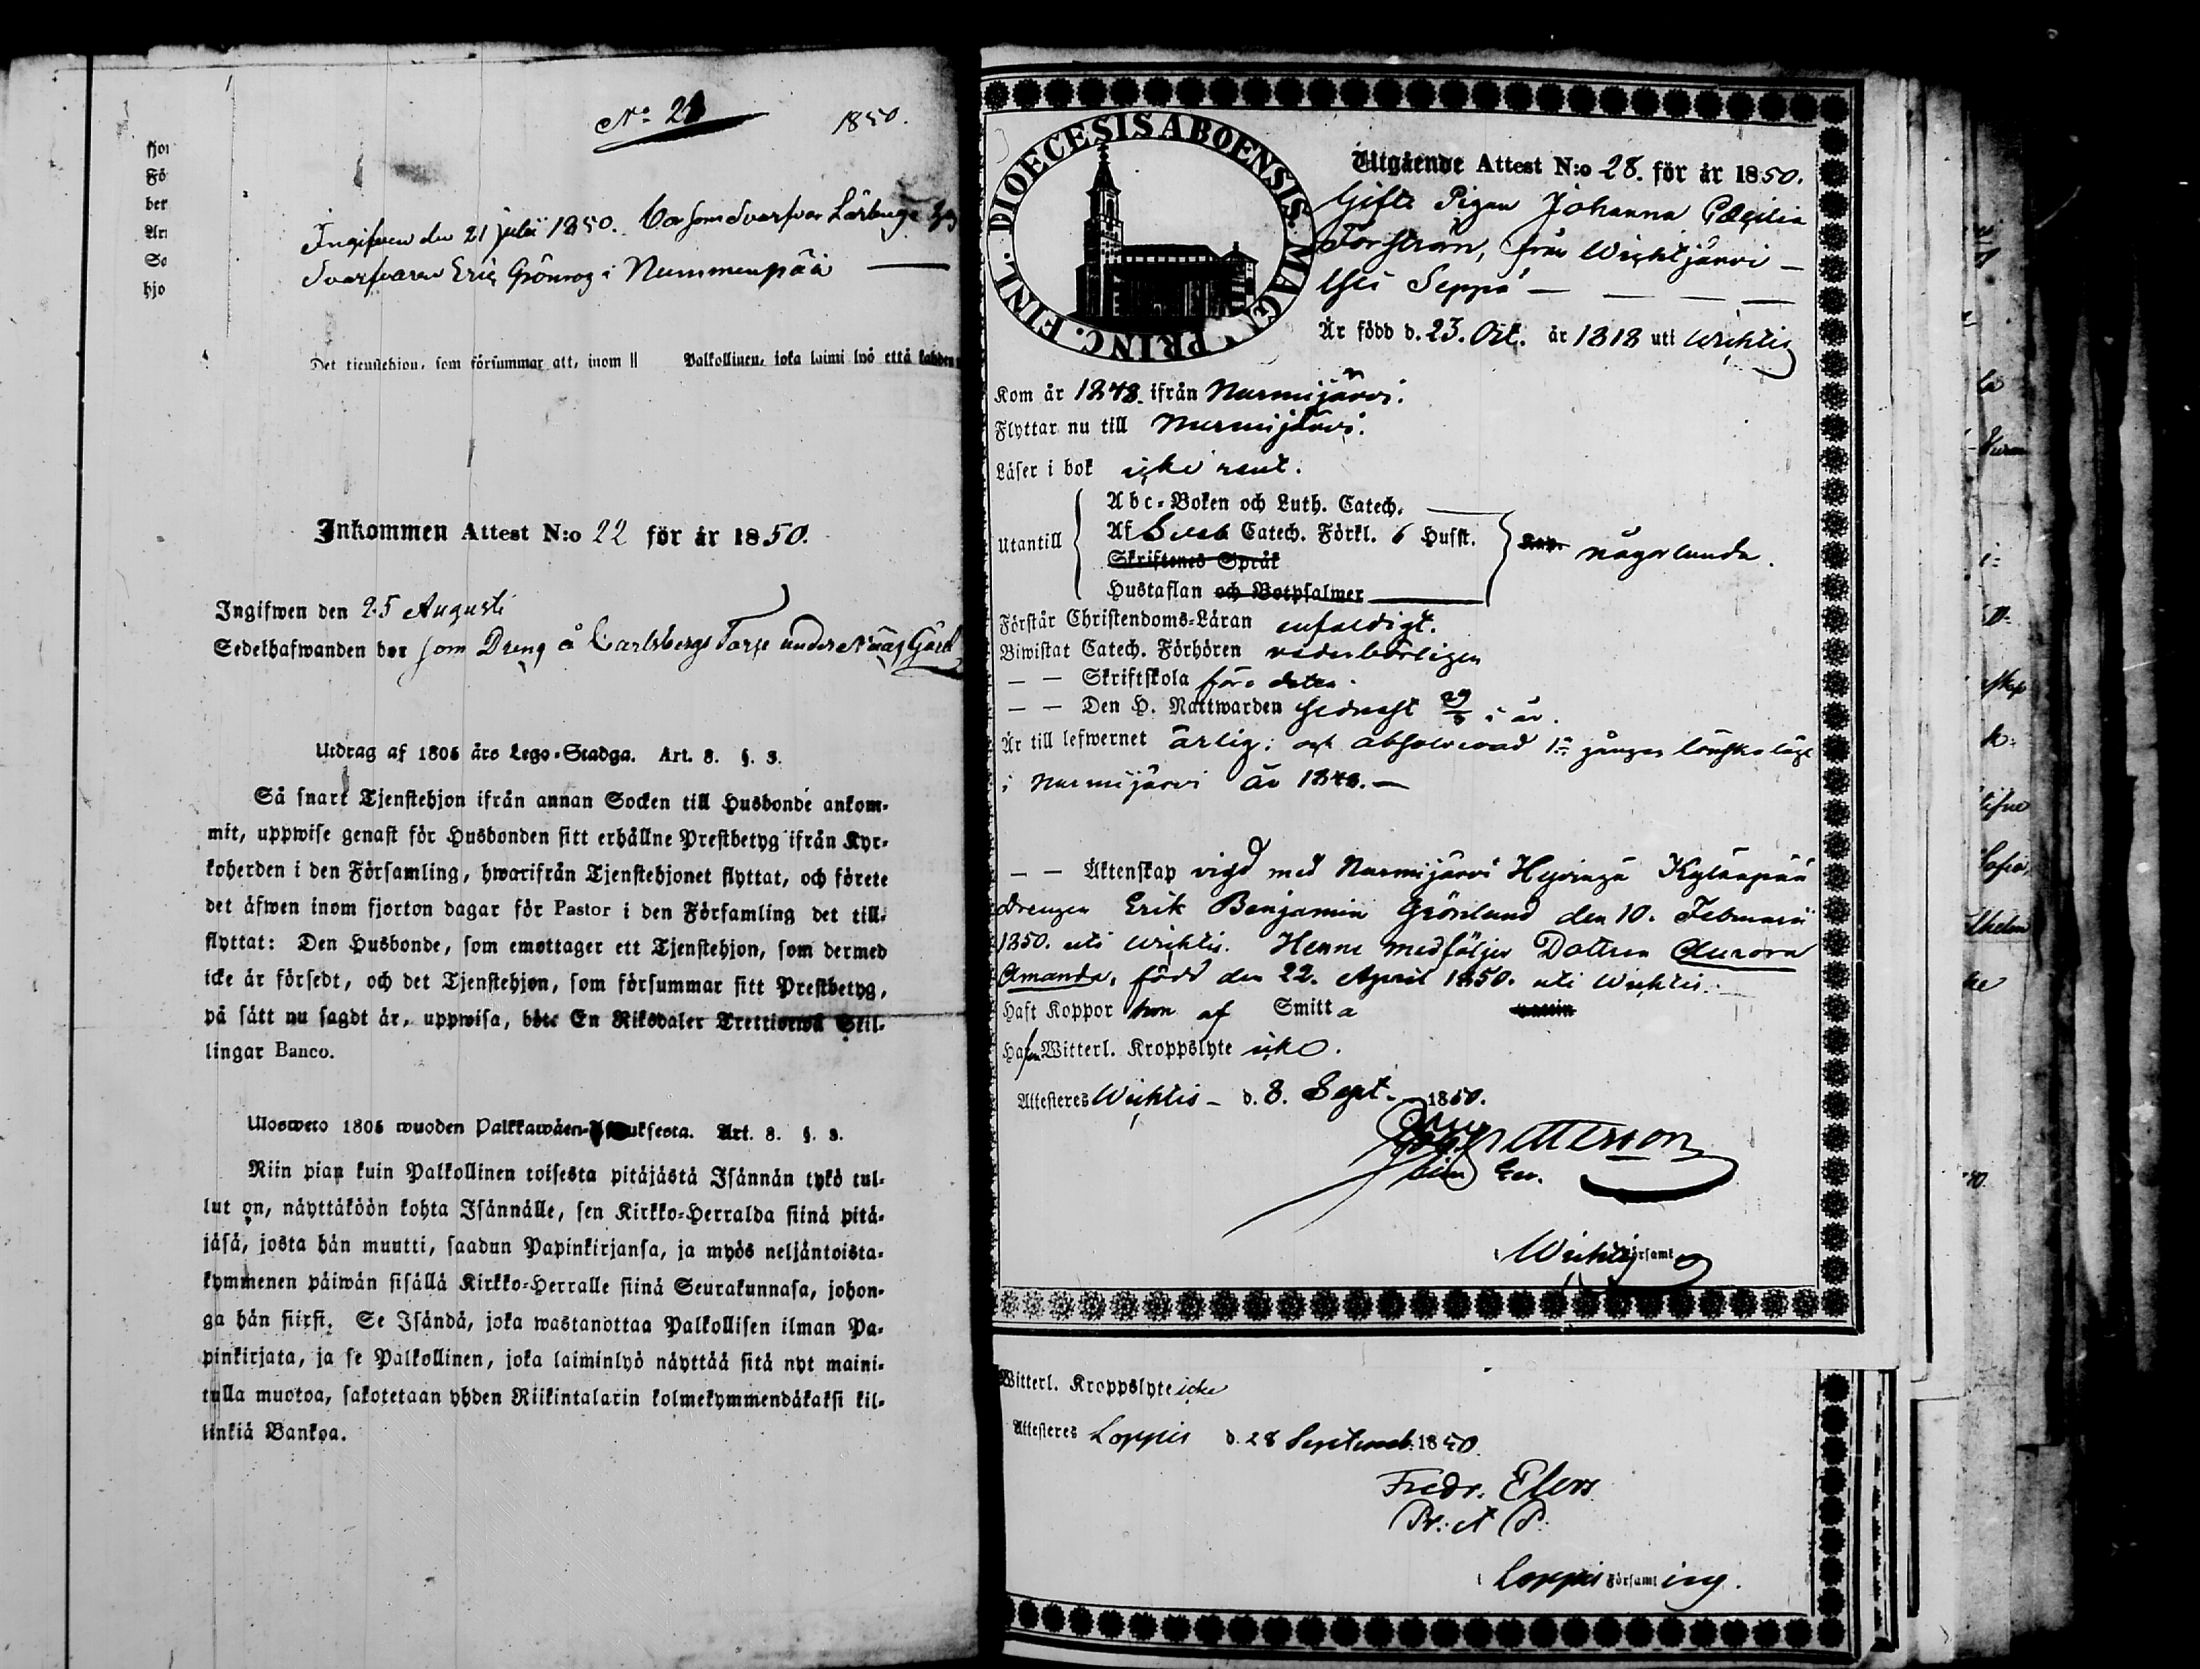 No 21
1850.
Ingifven den 21 julii 1850. Bor som Svarfvar Lärlinge hos
Svarfvaren Eric Grönroos i Nummenpää
Det tjenstehjon, som försummar att, inom || Palkollinen, joka laimi lyö että kahden
Inkommen Attest N:o 22 för år 1850.
Ingifwen den 25 Augusti
Sedelhafwanden bor som Dreng å Carlsbergs Torp under Nääs Gård
Utdrag af 1805 års Lego-Stadga. Art. 8. §. 3.
Så snart Tjenstehjon ifrån annan Socken till Husbonde ankom-
mit, uppwise genast för Husbonden sitt erhållne Prestbetyg ifrån Kyr-
koherden i den Församling, hwarifrån Tjenstehjonet flyttat, och förete
det äfwen inom fjorton dagar för Pastor i den Församling det till-
flyttat: Den Husbonde, som emottager ett Tjenstehjon, som dermed
icke är försedt, och det Tjenstehjon, som försummar sitt Prestbetyg,
på sätt nu sagdt är, uppwisa, böte En Riksdaler Trettiotwå Skil-
lingar Banco.
Ulosweto 1805 wuoden Palkkawäen- Art. 8. §. 3.
Niin pian kuin Palkollinen toisesta pitäjästä Isännän tykö tul-
lut on, näyttäköön kohta Isännälle, sen Kirkko-Herralda siinä pitä-
jäsä, josta hän muutti, saadun Papinkirjansa, ja myös neljäntoista-
kymmenen päiwän sisällä Kirkko-Herralle siinä Seurakunnasa, johon-
ga hän siirsi. Se Isändä, joka wastanottaa Palkollisen ilman Pa-
pinkirjata, ja se Palkollinen, joka laiminlyö näyttää sitä nyt maini-
tulla muotoa, sakotetaan yhden Riikintalarin kolmekymmendäkaksi kil-
linkiä Bankoa.
DIOECESIS ABOENSIS. MAGN. PRINC. FINL.
Utgående Attest N:o 28. för år 1850.
Gifta Pigan Johanna Cæcilia
Forsström, från Wichtjärvi
Ylli Seppä
Är född d. 23. Oct. år 1818 uti Wichtis
Kom år 1848. ifrån Nurmijärvi.
Flyttar nu till Nurmijärvi.
Läser i bok icke rent.
Utantill
Abc-Boken och Luth. Catech.
Af Sveb Catech. Förkl. 6 Hufst.
Skriftenes Språk
Hustaflan och Botpsalmer
någorlunda.
Förstår Christendoms-Läran enfaldigt.
Biwistat Catech. Förhören vederbörligen
— — Skriftskola före detta.
— — Den H. Nattwarden sednast 29/5 i år.
Är till lefwernet ärlig; och absolverad 1:a gången lönskaläge
i Nurmijärvi år 1848.
— — Äktenskap vigd med Nurmijärvi Hyvinge Kyläänpää
Drengen Erik Benjamin Grönlund den 10. Februarii
1850. uti Wichtis. Henne medföljer Dottren Aurora
Amanda, född den 22. April 1850. uti Wichtis.
Haft Koppor hon af Smitta
Hafwer Witterl. Kroppslyte icke.
Attesteres Wichtis d. 8. Sept. 1850.
i Wichtis Församl
Witterl. Kroppslyte icke
Attesteres Loppis d. 28 Septemb. 1850.
Fredr. Elers
Pr: et P.
i Loppis Församling.